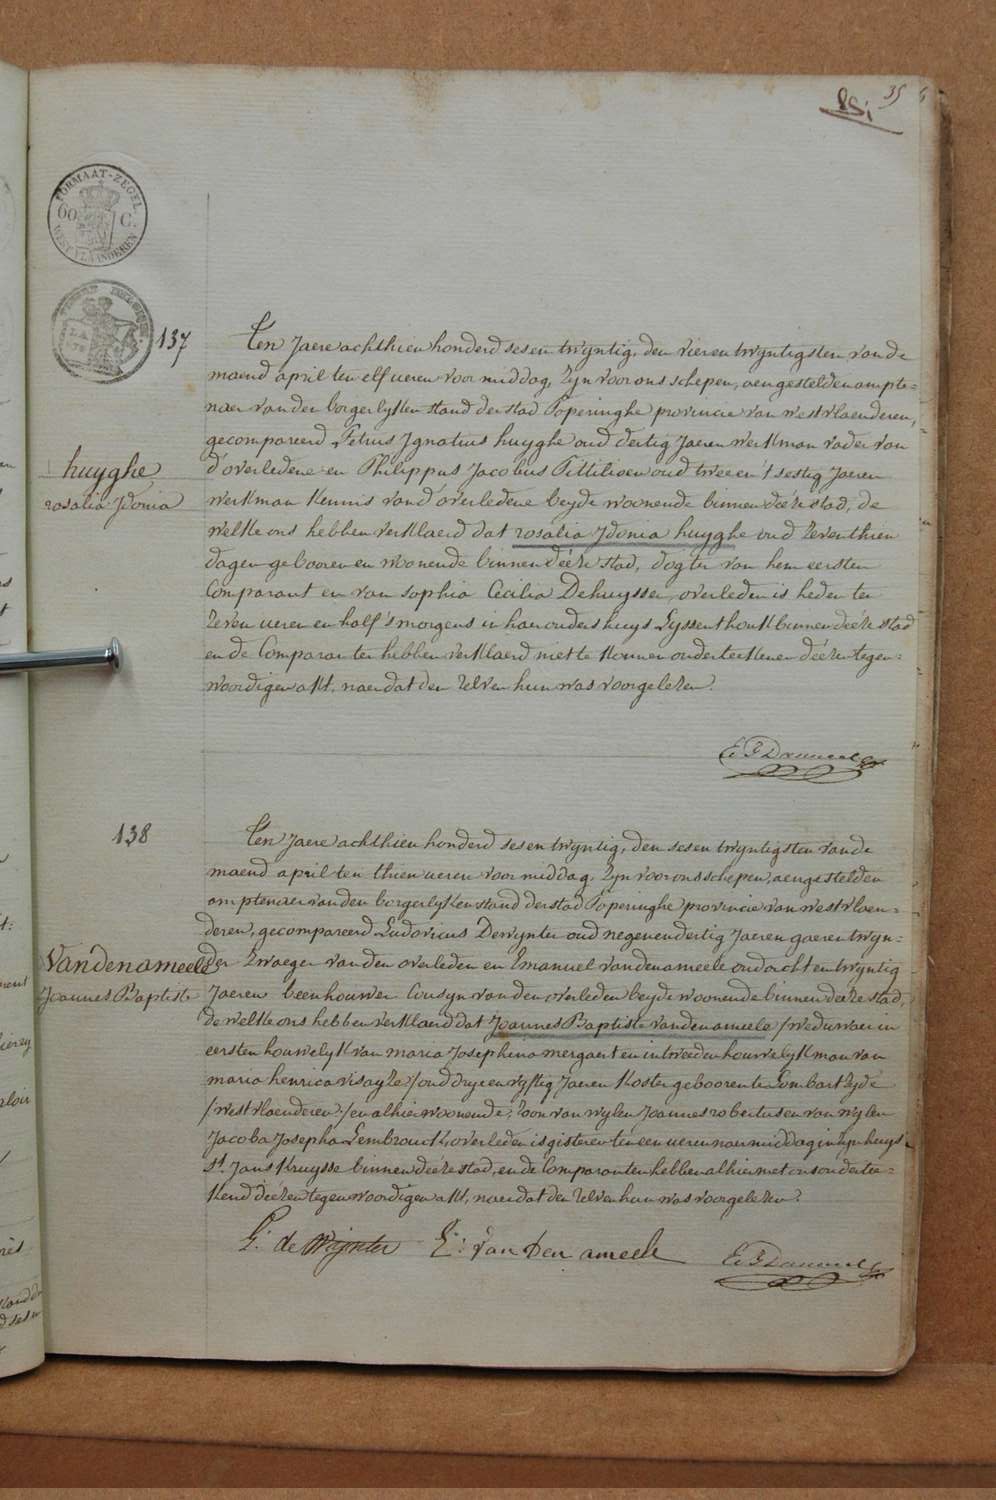 35
FORMAAT-ZEGEL
60 C.
WEST VLAANDEREN
137
huyghe
rosalia Idonia
Ten Jaere achthien honderd sesentwyntig, den vierentwyntigsten van de
maend april ten elf ueren voormiddag, Zyn voor ons schepen, aengestelden ampte=
naer van den borgerlyken stand der stad Poperinghe provincie van westvlaenderen,
gecompareerd Petrus Ignatius huyghe oud dertig Jaeren werkman vader van
d'overledene en Philippus Jacobus Pittilioen oud twee en 't sestig Jaeren
werkman kennis van d'overledene beyde woonende binnen deéze stad, de
welke ons hebben verklaerd dat rosalia Idonia huyghe oud zeventhien
dagen gebooren en woonende binnen deéze stad, dogter van hem eersten
Comparant en van sophia Cecilia Dehuysser, overleden is heden ten
zeven ueren en half 's morgens in haer ouders huys Lyssenthouk binnen deéze stad
en de Comparanten hebben verklaerd niet te konnen onderteekenen deézen tegen=
woordigen akt, naer dat den zelven hun was voorgelezen.
138
Vandenameele
Joannes Baptiste
Ten Jaere achthien honderd sesentwyntig, den sesentwyntigsten van de
maend april ten thien ueren voormiddag, Zyn voor ons schepen, aengestelden
amptenaer van den borgerlyken stand der stad Poperinghe provincie van westvlaen=
deren, gecompareerd Ludovicus Dewynter oud negenendertig Jaeren gaerentwyn=
der Zwaeger van den overleden en Emanuel vandenameele oud achtentwyntig
Jaeren beenhouwer Cousyn van den overleden beyde woonende binnen deéze stad,
de welke ons hebben verklaerd dat Joannes Baptiste vandenameele /weduwaer in
eersten houwelyk van maria Josephina mergaert en in tweeden houwelyk man van
maria henrica visayze/ oud drye en vyftig Jaeren koster gebooren te Lombartzyde
/westvlaenderen/ en alhier woonende, zoon van wylen Joannes robertus en van wylen
Jacoba Josepha Lembrouk, overleden is gisteren ten een ueren naermiddag in zyn huys
St. Jans kruysse binnen deéze stad, en de Comparanten hebben alhier met ons ondertee=
kend deézen tegenwoordigen akt, naer dat den zelven hun was voorgelezen.
L. de Wynter E. van Den ameele